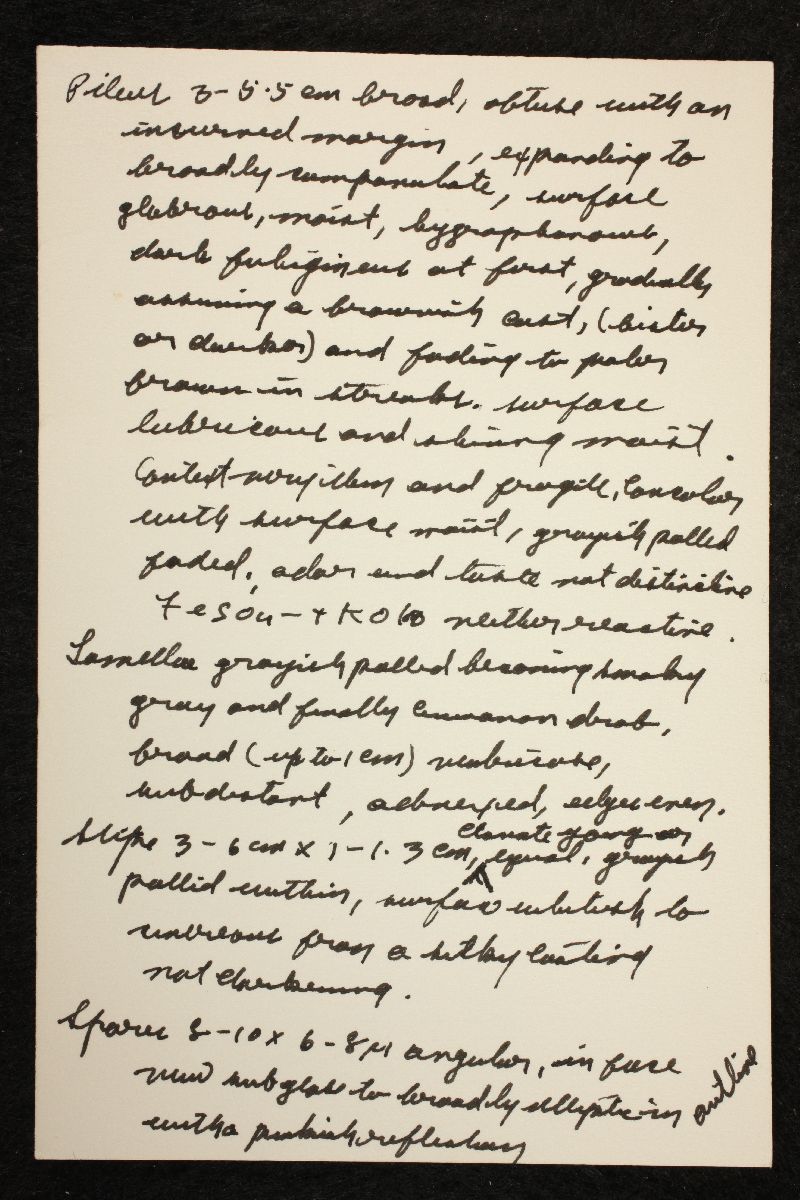 Pileus 3-5.5 cm broad, obtuse with an
incurved margin, expanding to
broadly campanulate, surface
glabrous, moist, hygrophanous,
dark fuliginous at first, gradually
assuming a brownish cast, (bister
or darker) and fading to paler
brown in streaks. surface
lubricous and shining moist.
Context very thin and fragile, concolor
with surface moist, grayish pallid
faded, odor and taste not distinctive
FeSO4 - + KOH neither reactive.
Lamellae grayish pallid becoming smoky
gray and finally cinnamon drab,
broad (up to 1 cm) ventricose,
subdistant, adnexed, edges even.
clavate young or
Stipe 3-6 cm x 1-1.3 cm, equal, grayish
pallid within, surface whitish to
cinereous from a silky coating
not darkening.
Spores 8-10 x 6-8 µ angular, in face
view subglobose to broadly elliptic in outline
with a pinkish reflection